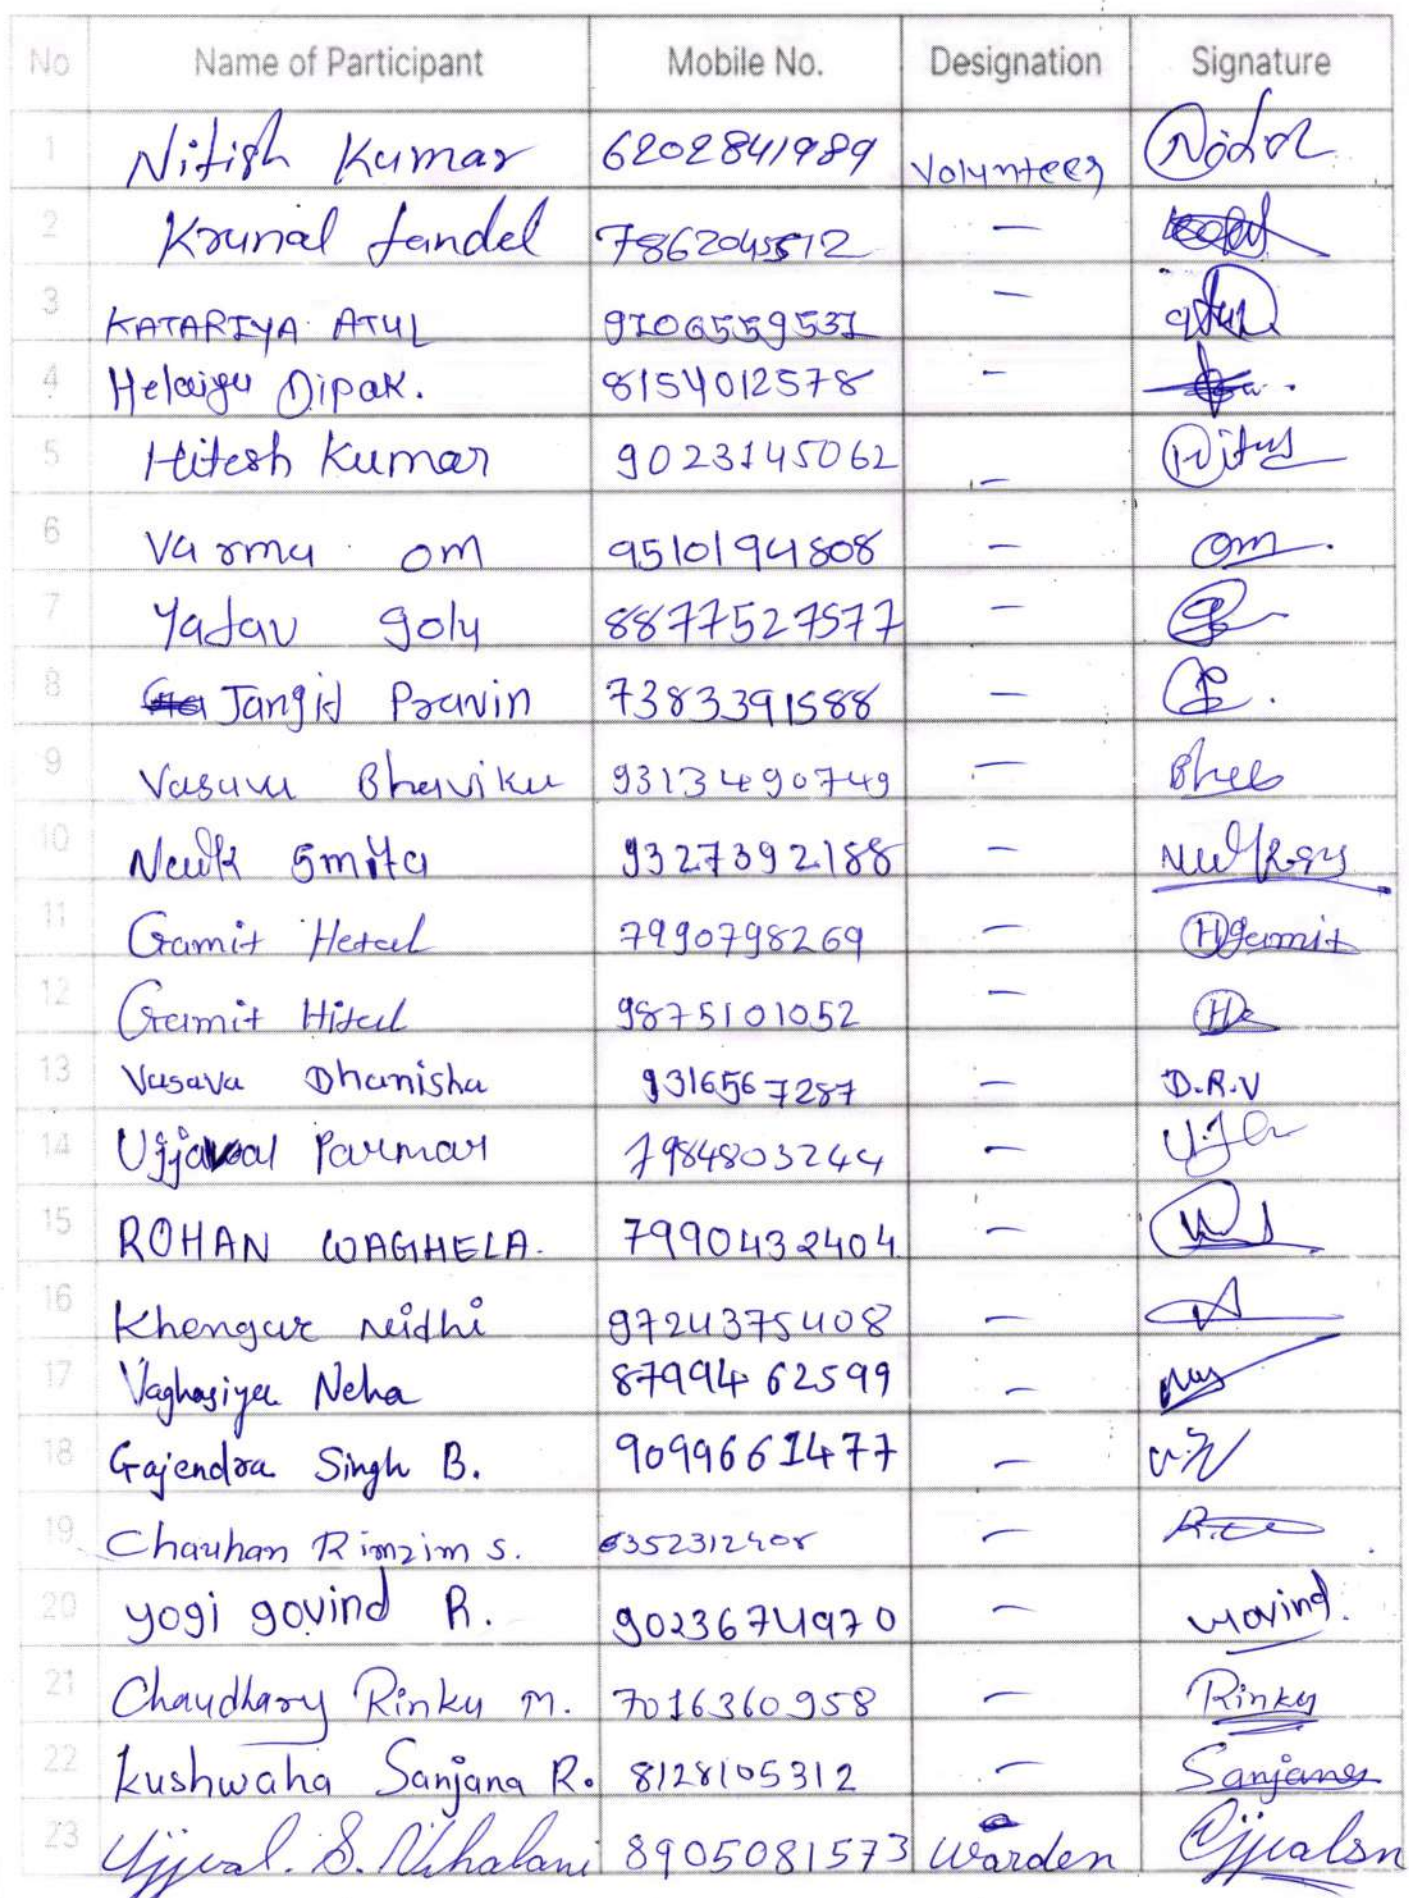 No Name of Participant Mobile No. Designation Signature
1 Nitish Kumar 6202841989 Volunteer
2 Krunal Tandel 7862045512 —
3 KATARIYA ATUL 9106559531 — Atul
4 Dipak. 8154012578 —
5 Hitesh Kumar 9023145062 — Hitus
6 Varma om 9510194808 — om.
7 Yadav goly 8877527577 —
8 Jangid Pravin 7383391588 —
9 Vasava Bhavika 9313490749 —
10 Smita 9327392188 —
11 Gamit Hetal 7990798269 — Hgamit
12 Gamit Hital 9875101052 —
13 Vasava Dhanisha 9316567287 — D.R.V
14 Ujjawal Parmar 7984803244 —
15 ROHAN WAGHELA. 7990432404 —
16 Khengar Nidhi 9724375408 —
17 Vaghasiya Neha 8799462599 —
18 Gajendra Singh B. 9099661477 —
19 Chauhan Rimzim S. 6352312408 —
20 yogi govind R. 9023674970 — Govind.
21 Chaudhary Rinku M. 7016360958 — Rinku
22 Kushwaha Sanjana R. 8128105312 — Sanjana
23 Ujjval. S. Nihalani 8905081573 Warden Ujjvalsn